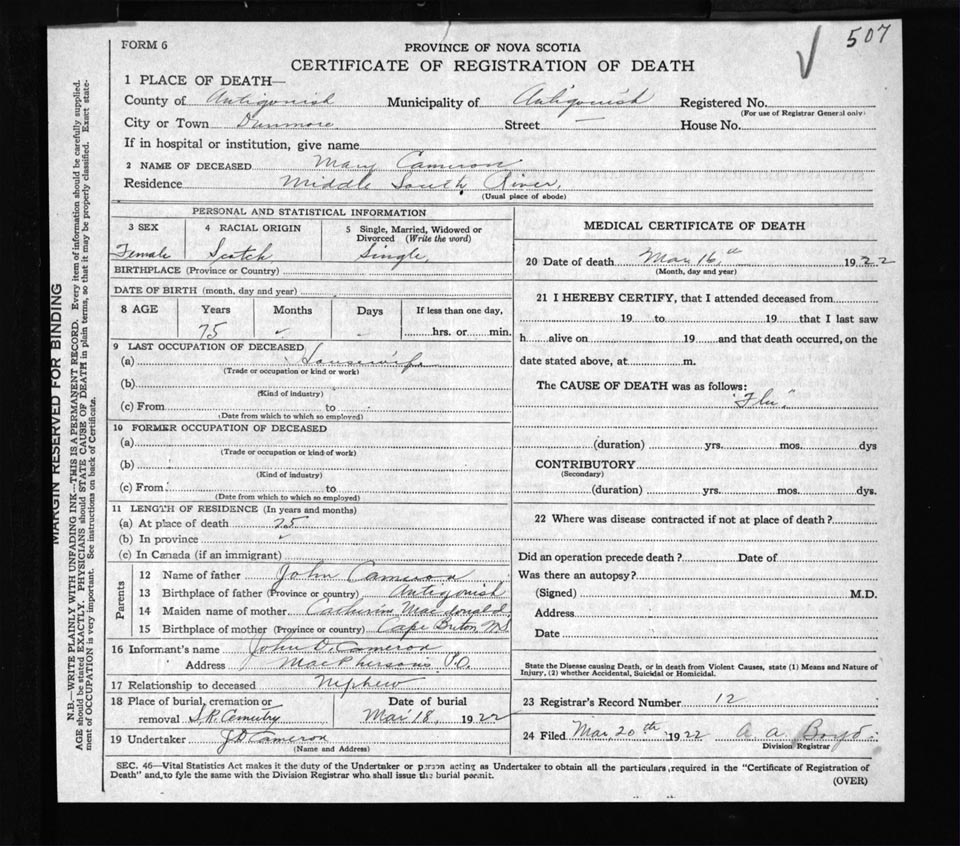 507
FORM 6
PROVINCE OF NOVA SCOTIA
CERTIFICATE OF REGISTRATION OF DEATH
1 PLACE OF DEATH—
County of Antigonish Municipality of Antigonish Registered No.
(For use of Registrar General only)
City or Town Dunmore Street — House No.
If in hospital or institution, give name
2 NAME OF DECEASED Mary Cameron
Residence Middle South River,
(Usual place of abode)
PERSONAL AND STATISTICAL INFORMATION
3 SEX 4 RACIAL ORIGIN 5 Single, Married, Widowed or
Divorced (Write the word)
Female Scotch Single,
BIRTHPLACE (Province or Country)
DATE OF BIRTH (month, day and year)
8 AGE Years Months Days If less than one day,
75 ✓ – hrs. or min.
9 LAST OCCUPATION OF DECEASED
(a) Housewife
(Trade or occupation or kind or work)
(b)
(Kind of industry)
(c) From to
(Date from which to which so employed)
10 FORMER OCCUPATION OF DECEASED
(a)
(Trade or occupation or kind of work)
(b)
(Kind of industry)
(c) From to
(Date from which to which so employed)
11 LENGTH OF RESIDENCE (In years and months)
(a) At place of death 75
(b) In province ✓
(c) In Canada (if an immigrant)
Parents
12 Name of father John Cameron
13 Birthplace of father (Province or country) Antigonish
14 Maiden name of mother Catherine MacDonald
15 Birthplace of mother (Province or country) Cape Briton NS
16 Informant's name John D. Cameron
Address MacPherson's P.O.
17 Relationship to deceased Nephew
18 Place of burial, cremation or Date of burial
removal S.R. Cemetry Mar 18, 1922
19 Undertaker J D Cameron
(Name and Address)
MEDICAL CERTIFICATE OF DEATH
20 Date of death Mar 16th 1922
(Month, day and year)
21 I HEREBY CERTIFY, that I attended deceased from
19 to 19 that I last saw
h alive on 19 and that death occurred, on the
date stated above, at m.
The CAUSE OF DEATH was as follows:
"Flu"
(duration) yrs. mos. dys
CONTRIBUTORY
(Secondary)
(duration) yrs. mos. dys.
22 Where was disease contracted if not at place of death?
Did an operation precede death? Date of
Was there an autopsy?
(Signed) M.D.
Address
Date
State the Disease causing Death, or in death from Violent Causes, state (1) Means and Nature of
Injury, (2) whether Accidental, Suicidal or Homicidal.
23 Registrar's Record Number 12
24 Filed Mar 20th 1922 A A Boyd
Division Registrar
SEC. 46—Vital Statistics Act makes it the duty of the Undertaker or person acting as Undertaker to obtain all the particulars required in the "Certificate of Registration of
Death" and to fyle the same with the Division Registrar who shall issue the burial permit.
(OVER)
MARGIN RESERVED FOR BINDING
N.B.—WRITE PLAINLY WITH UNFADING INK—THIS IS A PERMANENT RECORD. Every item of information should be carefully supplied.
AGE should be stated EXACTLY. PHYSICIANS should STATE CAUSE OF DEATH in plain terms, so that it may be properly classified. Exact state-
ment of OCCUPATION is very important. See instructions on back of Certificate.